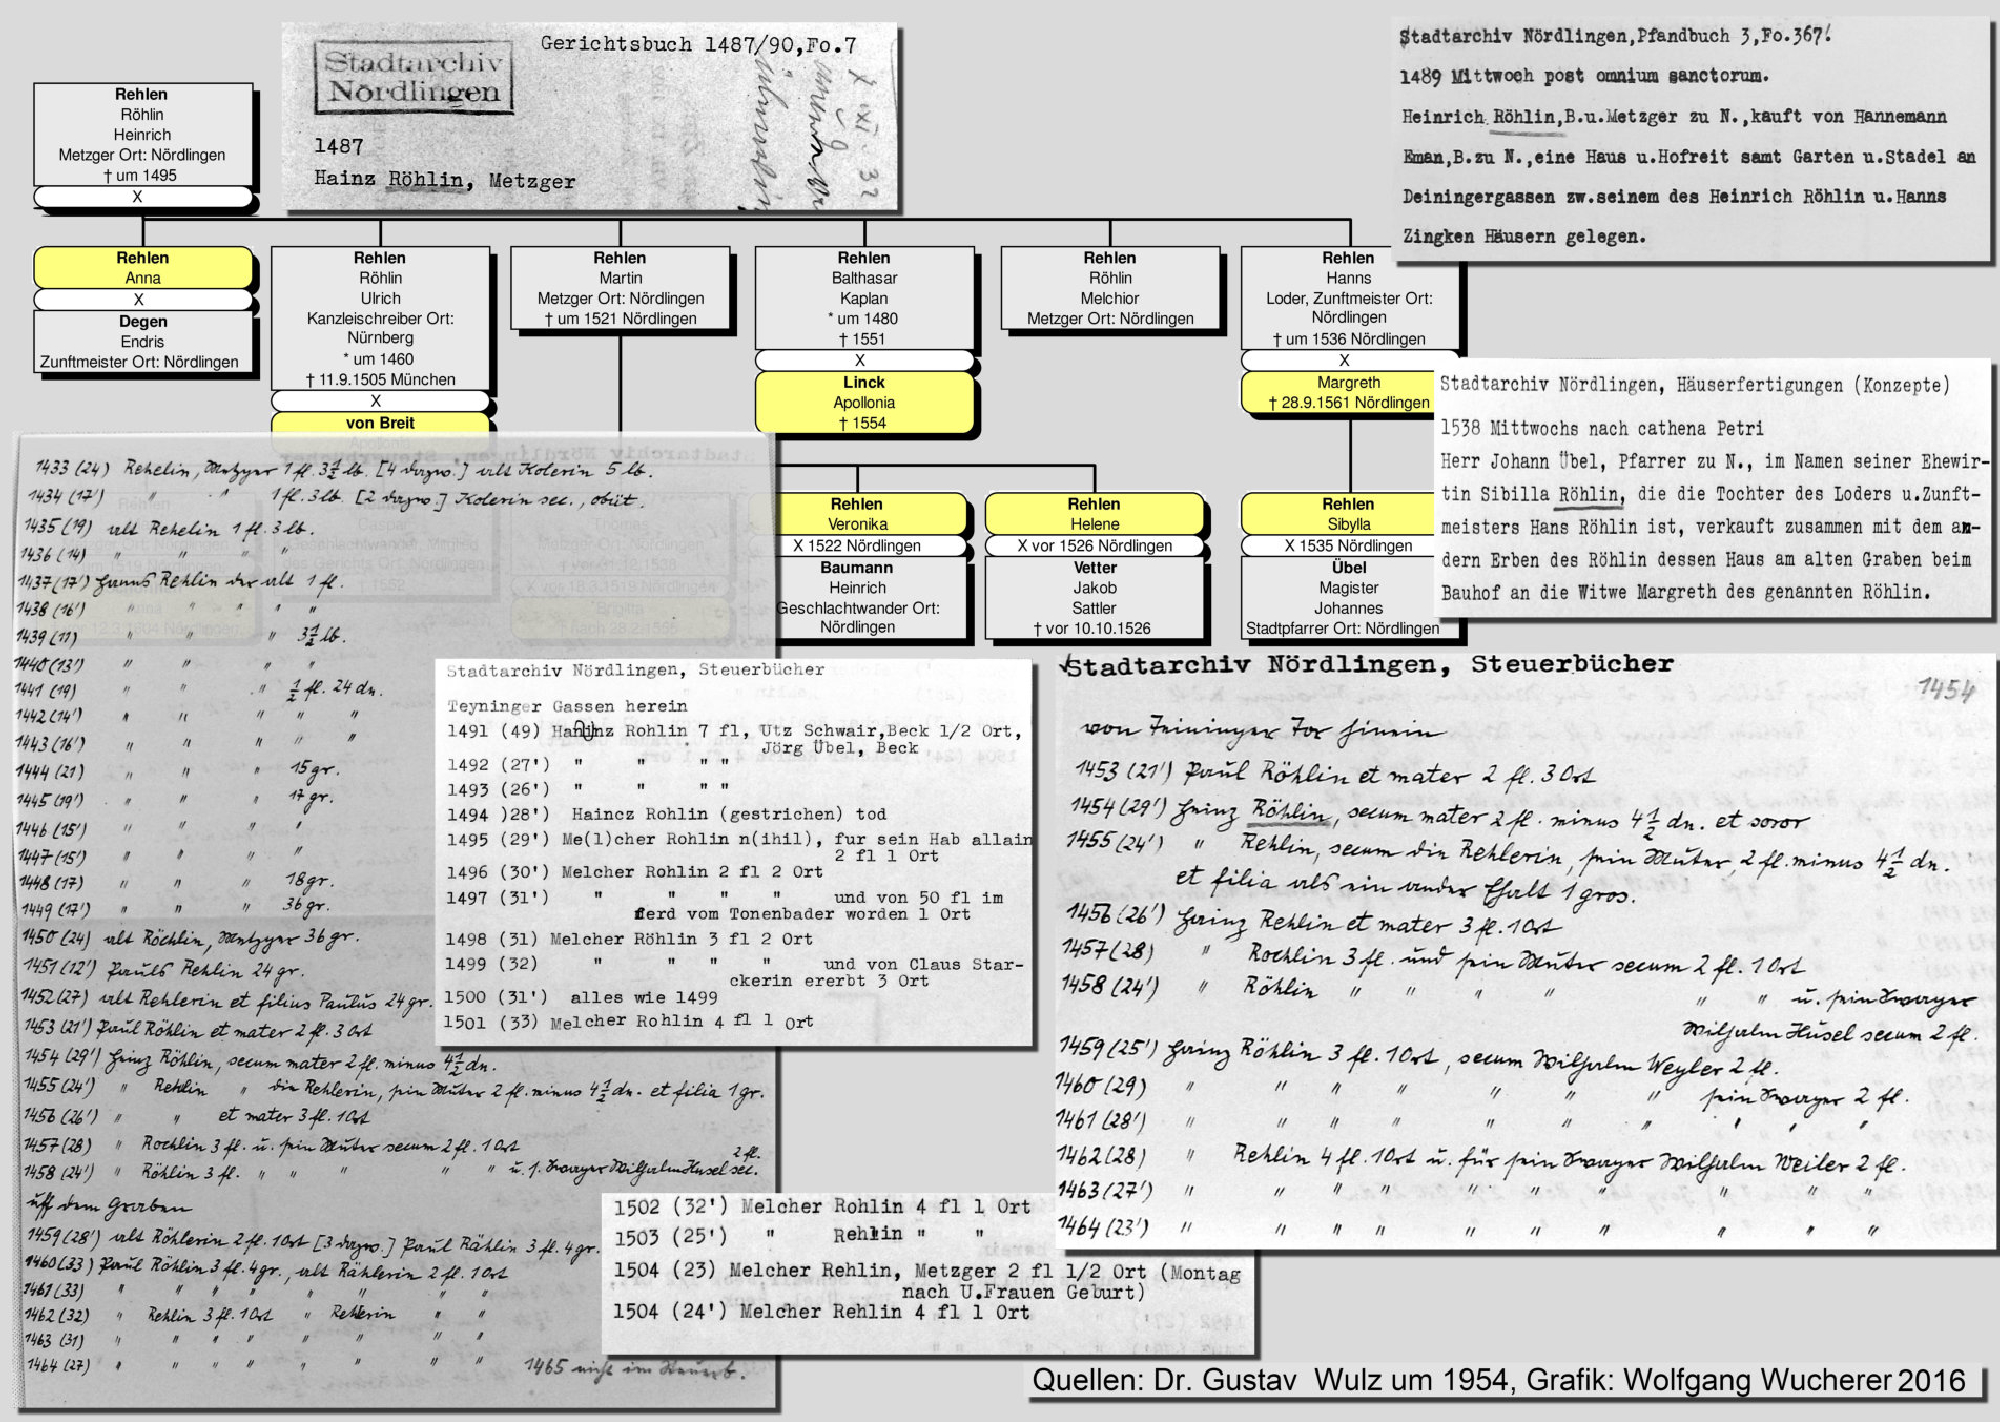 Gerichtsbuch 1487/90, Fo.7
Stadtarchiv
Nördlingen
1487
Hainz Röhlin, Metzger
Stadtarchiv Nördlingen,Pfandbuch 3,Fo.367!
1489 Mittwoch post omnium sanctorum.
Heinrich Röhlin,B.u.Metzger zu N.,kauft von Hannemann
Eman,B.zu N.,eine Haus u.Hofreit samt Garten u.Stadel an
Deiningergassen zw.seinem des Heinrich Röhlin u.Hanns
Zingken Häusern gelegen.
Rehlen
Röhlin
Heinrich
Metzger Ort: Nördlingen
† um 1495
X
Rehlen
Anna
X
Degen
Endris
Zunftmeister Ort: Nördlingen
Rehlen
Röhlin
Ulrich
Kanzleischreiber Ort:
Nürnberg
* um 1460
† 11.9.1505 München
X
von Breit
Rehlen
Martin
Metzger Ort: Nördlingen
† um 1521 Nördlingen
Rehlen
Balthasar
Kaplan
* um 1480
† 1551
X
Linck
Apollonia
† 1554
Rehlen
Röhlin
Melchior
Metzger Ort: Nördlingen
Rehlen
Hanns
Loder, Zunftmeister Ort:
Nördlingen
† um 1536 Nördlingen
X
Margreth
† 28.9.1561 Nördlingen
Rehlen
Veronika
X 1522 Nördlingen
Baumann
Heinrich
Geschlachtwander Ort:
Nördlingen
Rehlen
Helene
X vor 1526 Nördlingen
Vetter
Jakob
Sattler
† vor 10.10.1526
Rehlen
Sibylla
X 1535 Nördlingen
Übel
Magister
Johannes
Stadtpfarrer Ort: Nördlingen
Stadtarchiv Nördlingen, Häuserfertigungen (Konzepte)
1538 Mittwochs nach cathena Petri
Herr Johann Übel, Pfarrer zu N., im Namen seiner Ehewir-
tin Sibilla Röhlin, die die Tochter des Loders u.Zunft-
meisters Hans Röhlin ist, verkauft zusammen mit dem an-
dern Erben des Röhlin dessen Haus am alten Graben beim
Bauhof an die Witwe Margreth des genannten Röhlin.
1433 (24) Rehelin, Metzger 1 fl. 3½ lb. [4 darzw.] alt Kolerin 5 lb.
1434 (17') " " 1 fl. 3 lb. [2 darzw.] Kolerin sec., obiit.
1435 (19) alt Rehelin 1 fl. 3 lb.
1436 (14) " " " "
1437 (17') Hanns Rehlin der alt 1 fl.
1438 (16') " " " " "
1439 (11) " " " 3½ lb.
1440 (13') " " " "
1441 (19) " " " ½ fl. 24 dn.
1442 (14') " " " " "
1443 (16') " " " " "
1444 (21) " " " 15 gr.
1445 (19') " " " 17 gr.
1446 (15') " " " "
1447 (15') " " " "
1448 (17) " " " 18 gr.
1449 (17') " " " 36 gr.
1450 (24) alt Röchlin, Metzger 36 gr.
1451 (12') Pauls Rehlin 24 gr.
1452 (27) alt Rehlerin et filius Paulus 24 gr.
1453 (21') Paul Röhlin et mater 2 fl. 3 Ort
1454 (29') Heinz Röhlin, secum mater 2 fl. minus 4½ dn.
1455 (24') " Rehlin " die Rehlerin, sein Muter 2 fl. minus 4½ dn. et filia 1 gr.
1456 (26') " " et mater 3 fl. 1 Ort
1457 (28) " Rochlin 3 fl. u. sein Muter secum 2 fl. 1 Ort
1458 (24') " Röhlin 3 fl. " " " " " u. s. Swayer Wilhalm Husel sec. 2 fl.
uff dem Graben
1459 (28') alt Röhlerin 2 fl. 1 Ort [3 darzw.] Paul Rählin 3 fl. 4 gr.
1460 (33) Paul Röhlin 3 fl. 4 gr., alt Rählerin 2 fl. 1 Ort
1461 (33) " " " " " " " "
1462 (32) " Rehlin 3 fl. 1 Ort " Rehlerin " "
1463 (31) " " " " " " " "
1464 (27) " " " " " " " " 1465 nicht im Steuerb.
Stadtarchiv Nördlingen, Steuerbücher
Teyninger Gassen herein
1491 (49) Hainz Rohlin 7 fl, Utz Schwair,Beck 1/2 Ort,
Jörg Übel, Beck
1492 (27') " " " "
1493 (26') " " " "
1494 )28') Haincz Rohlin (gestrichen) tod
1495 (29') Me(l)cher Rohlin n(ihil), fur sein Hab allain
2 fl 1 Ort
1496 (30') Melcher Rohlin 2 fl 2 Ort
1497 (31') " " " " und von 50 fl im
ferd vom Tonenbader worden 1 Ort
1498 (31) Melcher Röhlin 3 fl 2 Ort
1499 (32) " " " " und von Claus Star-
ckerin ererbt 3 Ort
1500 (31') alles wie 1499
1501 (33) Melcher Rohlin 4 fl 1 Ort
1502 (32') Melcher Rohlin 4 fl 1 Ort
1503 (25') " Rehlin " "
1504 (23) Melcher Rehlin, Metzger 2 fl 1/2 Ort (Montag
nach U.Frauen Geburt)
1504 (24') Melcher Rehlin 4 fl 1 Ort
Stadtarchiv Nördlingen, Steuerbücher
1454
von Teininger Tor hinein
1453 (21') Paul Röhlin et mater 2 fl. 3 Ort
1454 (29') Heinz Röhlin, secum mater 2 fl. minus 4½ dn. et soror
1455 (24') " Rehlin, secum die Rehlerin, sein Muter, 2 fl. minus 4½ dn.
et filia als ein ander Ehalt 1 gros.
1456 (26') Hainz Rehlin et mater 3 fl. 1 Ort
1457 (28) " Rochlin 3 fl. und sein Muter secum 2 fl. 1 Ort
1458 (24') " Röhlin " " " " " " u. sein Swayer
Wilhalm Husel secum 2 fl.
1459 (25') Hainz Röhlin 3 fl. 1 Ort, secum Wilhalm Weyler 2 fl.
1460 (29) " " " " " " " sein Swayer 2 fl.
1461 (28') " " " " " " " " " "
1462 (28) " Rehlin 4 fl. 1 Ort u. für sein Swayer Wilhalm Weiler 2 fl.
1463 (27') " " " " " " " " " "
1464 (23') " " " " " " " " " "
Quellen: Dr. Gustav Wulz um 1954, Grafik: Wolfgang Wucherer 2016